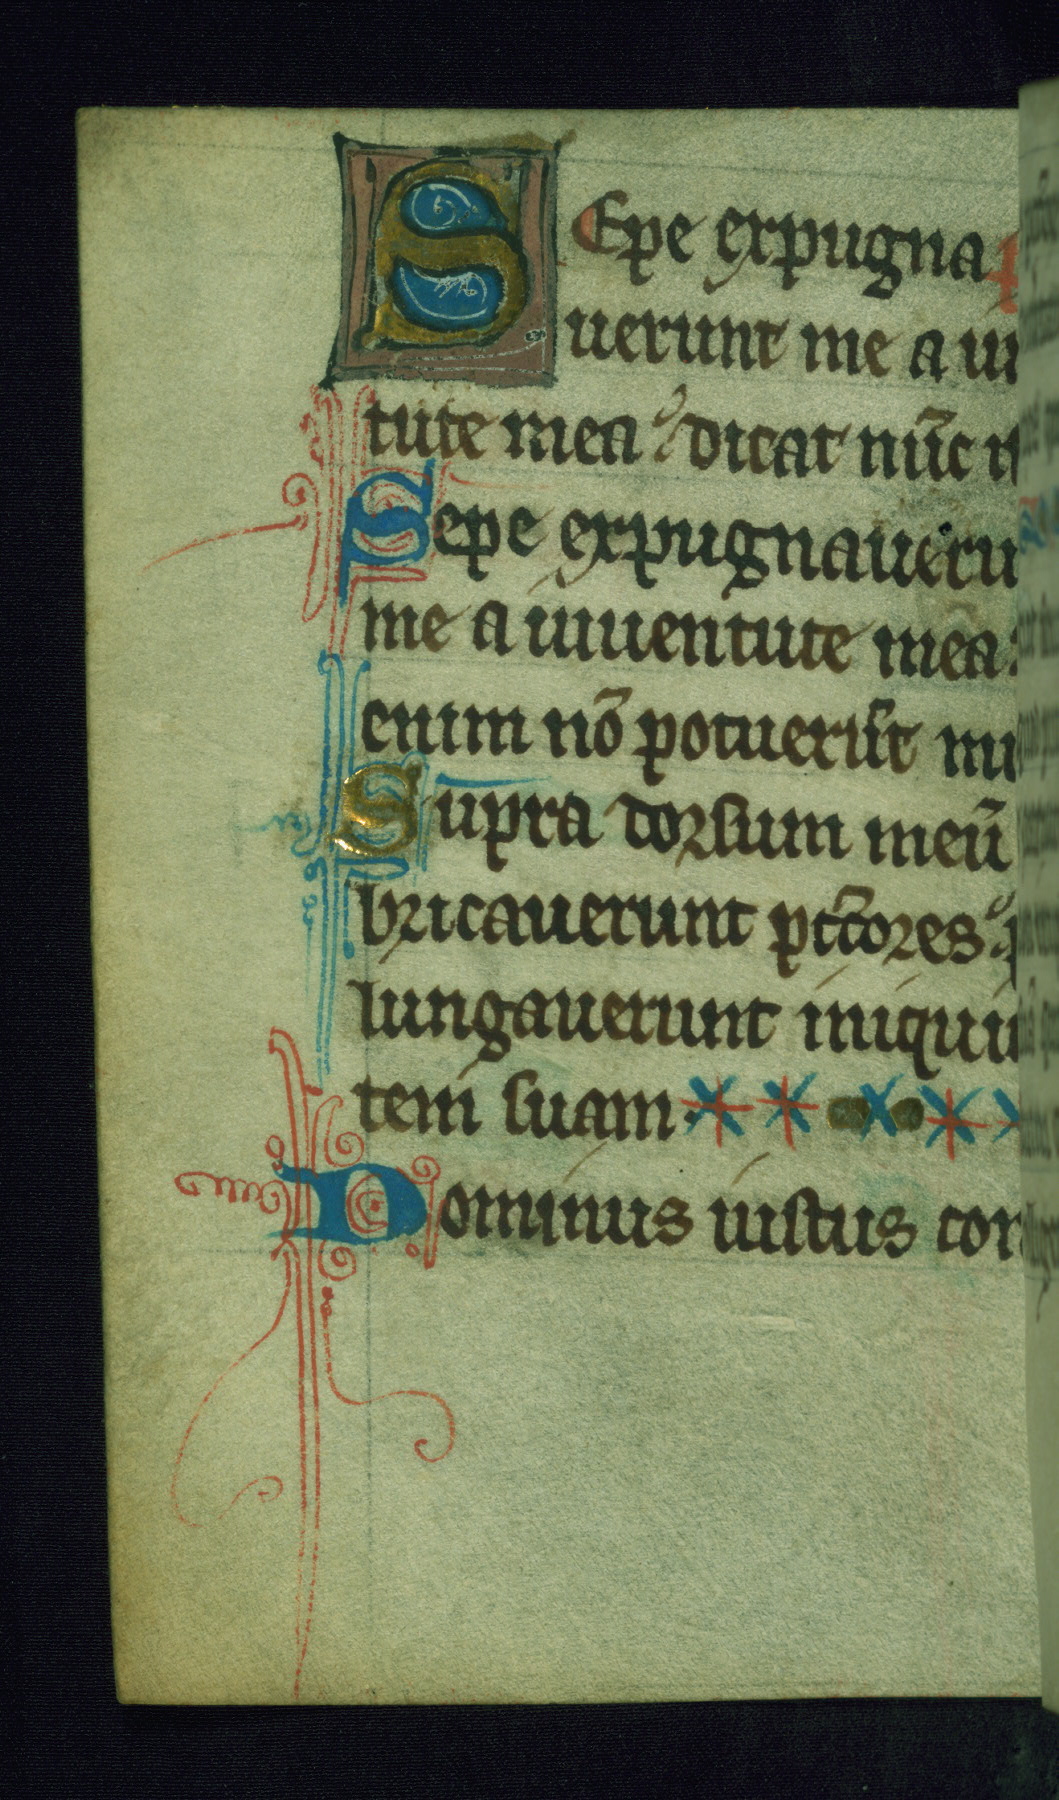 SEpe expugna
uerunt me a iu
tute mea dicat nūc
Sepe expugnaueru
me a iuuentute mea
enim nō potuerūt mi
Supra dorsum meū
bricauerunt pc̄cores
lungauerunt iniqui
tem suam
Dominus iustus con